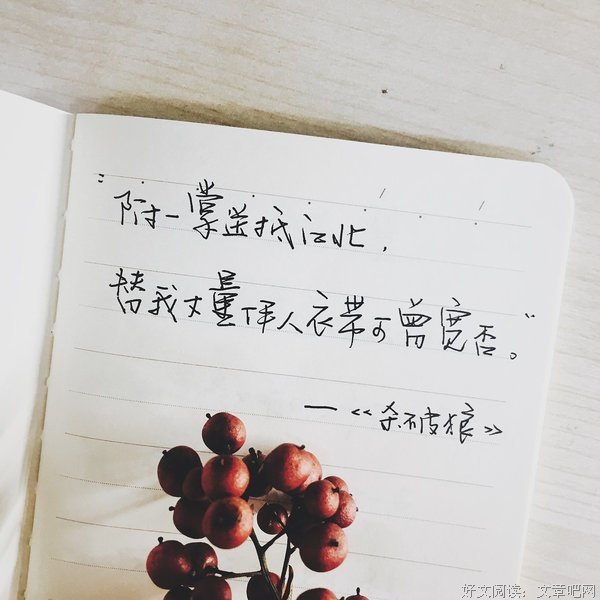 "附一掌送抵江北，
替我丈量伊人衣带可曾宽否。"
—《杀破狼》
好文阅读：文章吧网